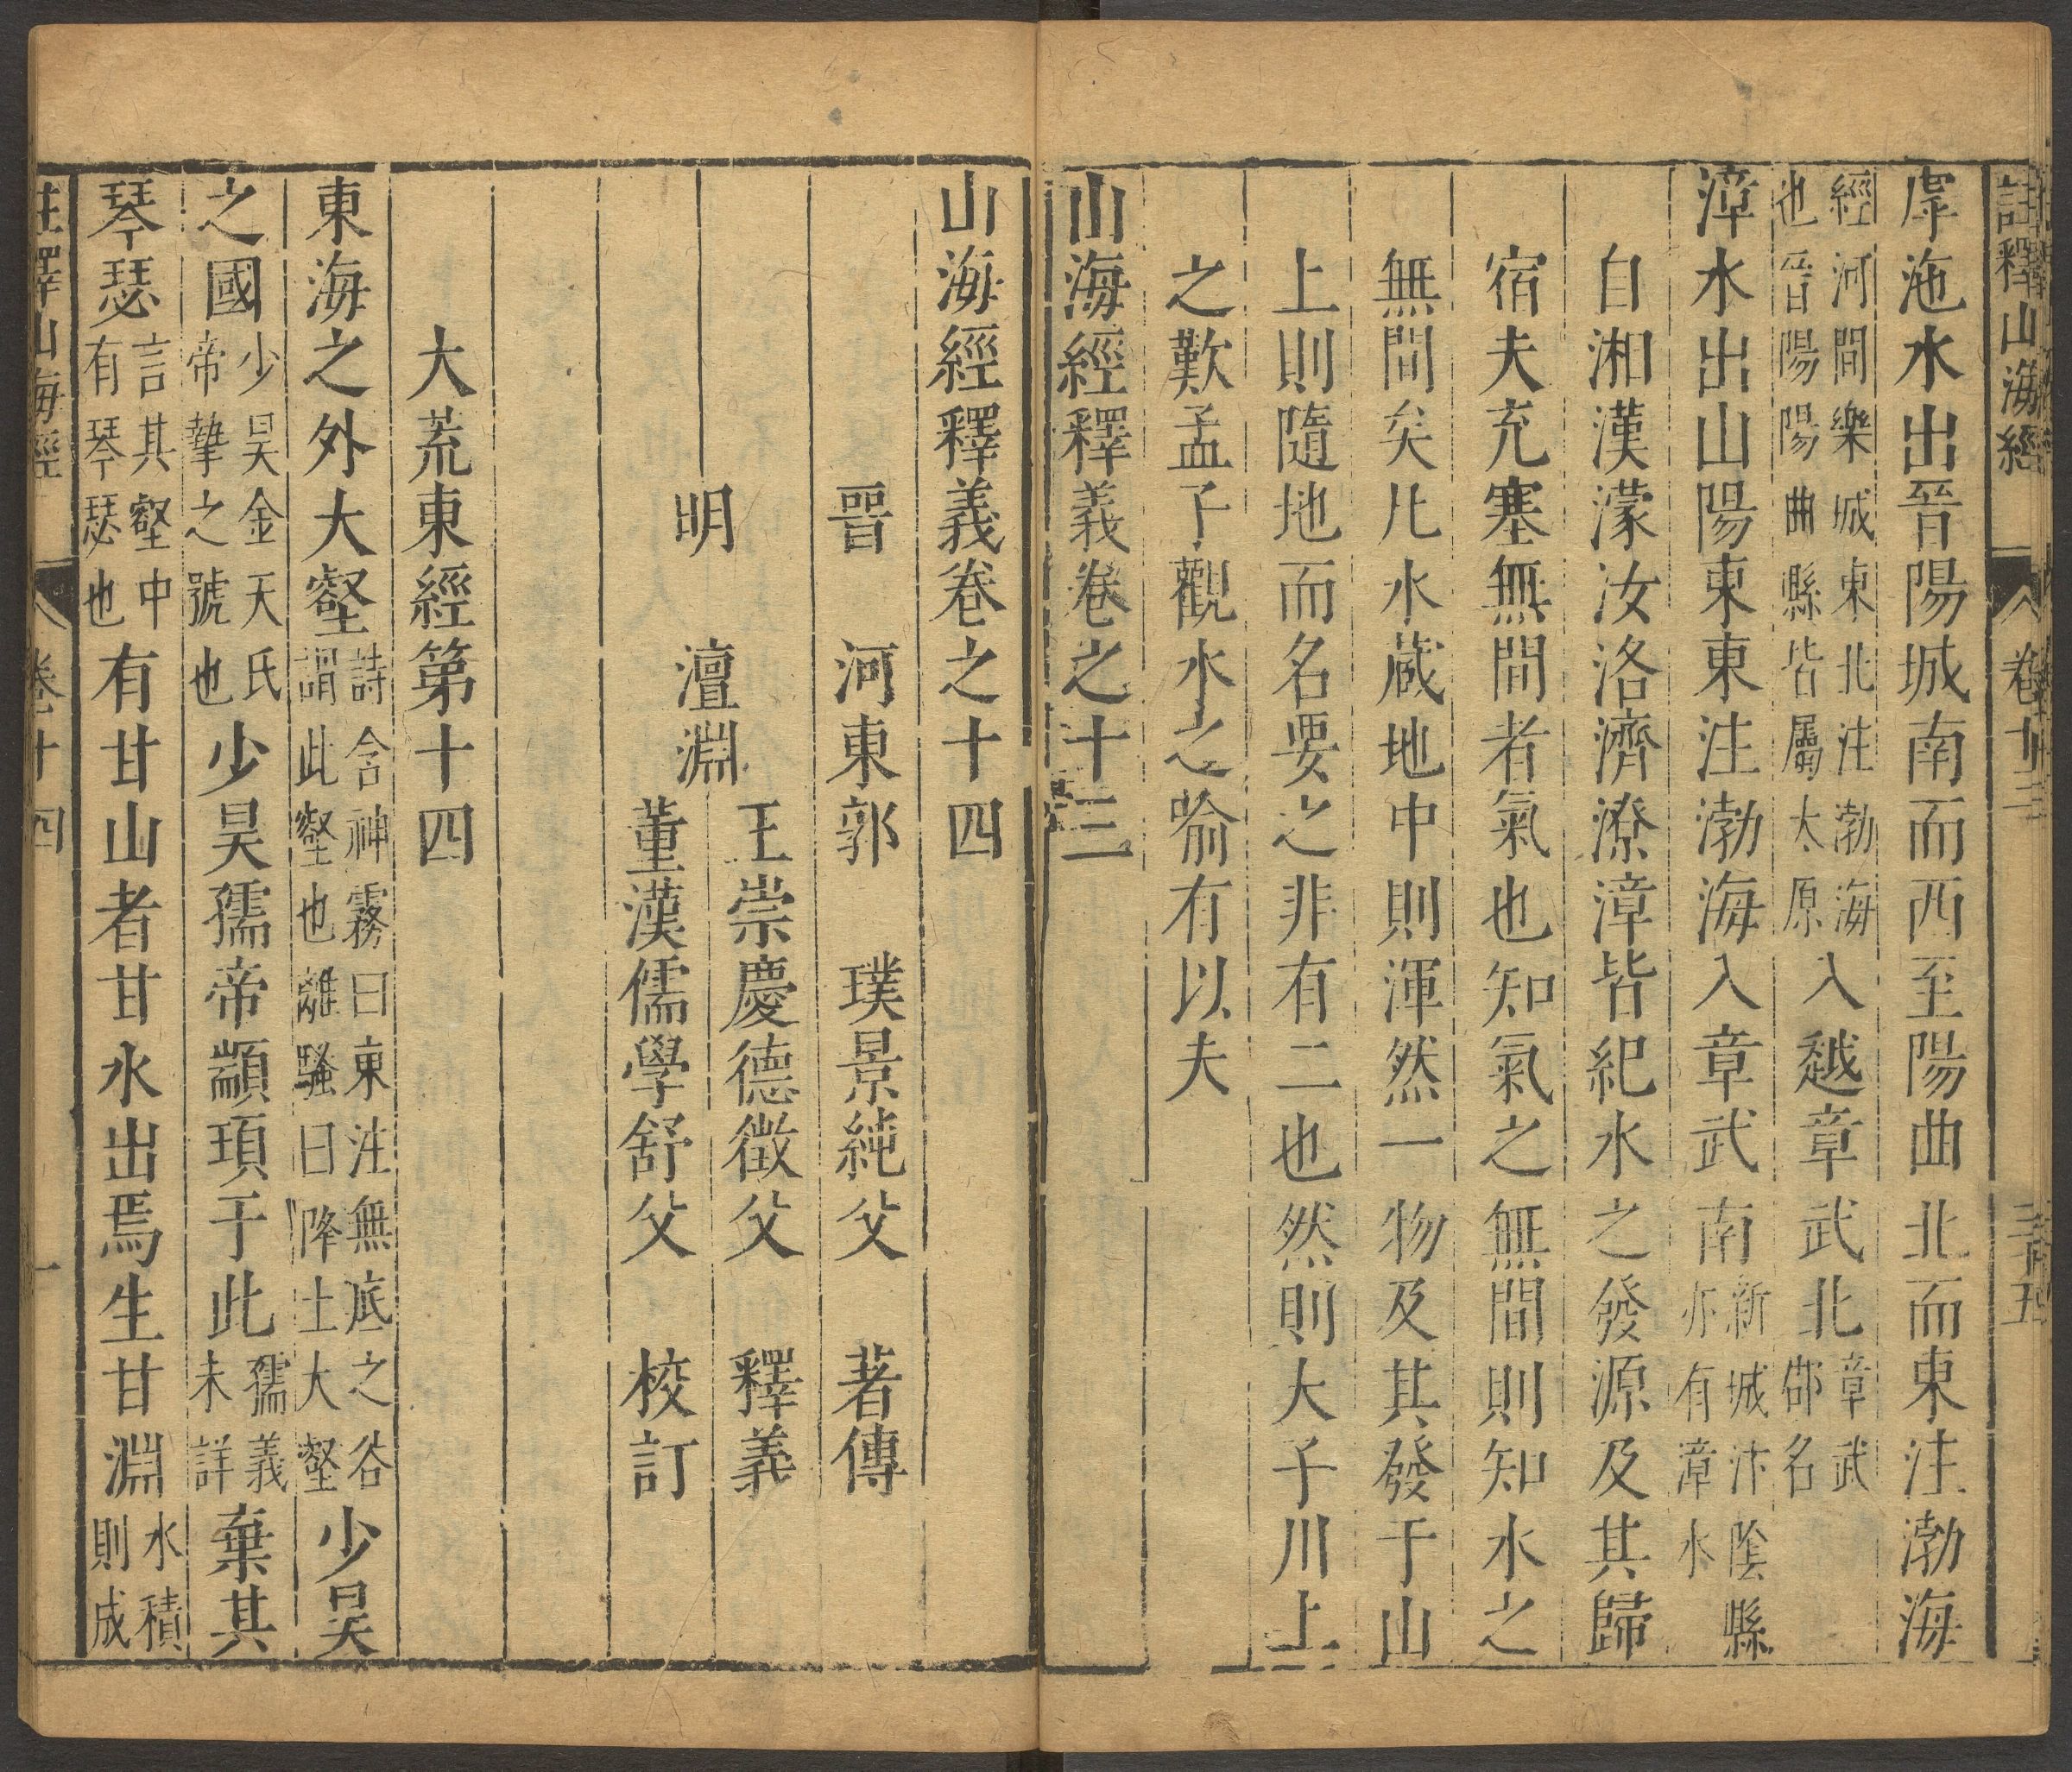 註釋山海經 卷十三 三十五
虖沲水出晉陽城南而西至陽曲北而東注渤海
經河間樂城東北注渤海也晉陽陽曲縣皆屬太原入越章武北章武郡名
漳水出山陽東東注渤海入章武南新城汴陰縣亦有漳水
自湘漢濛汝洛濟潦漳皆紀水之發源及其歸
宿夫充塞無間者氣也知氣之無間則知水之
無間矣比水蔵地中則渾然一物及其發于山
上則隨地而名要之非有二也然則大子川上
之歎孟子觀水之喻有以夫
山海經釋義卷之十三
山海經釋義卷之十四
晉 河東郭 璞景純父 著傳
明 澶淵 王崇慶德徵父 釋義
董漢儒學舒父 校訂
大荒東經第十四
東海之外大壑詩含神霧曰東注無底之谷謂此壑也離騷曰降土大壑少昊
之國少昊金天氏帝摯之號也少昊孺帝顓頊于此孺義未詳棄其
琴瑟言其壑中有琴瑟也有甘山者甘水出焉生甘淵水積則成
註釋山海經 卷十四 一